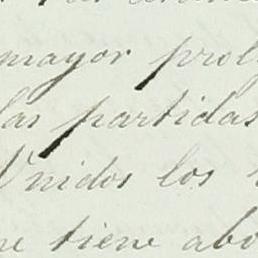 mayor prol
las partidas
Unidos los
tiene abo